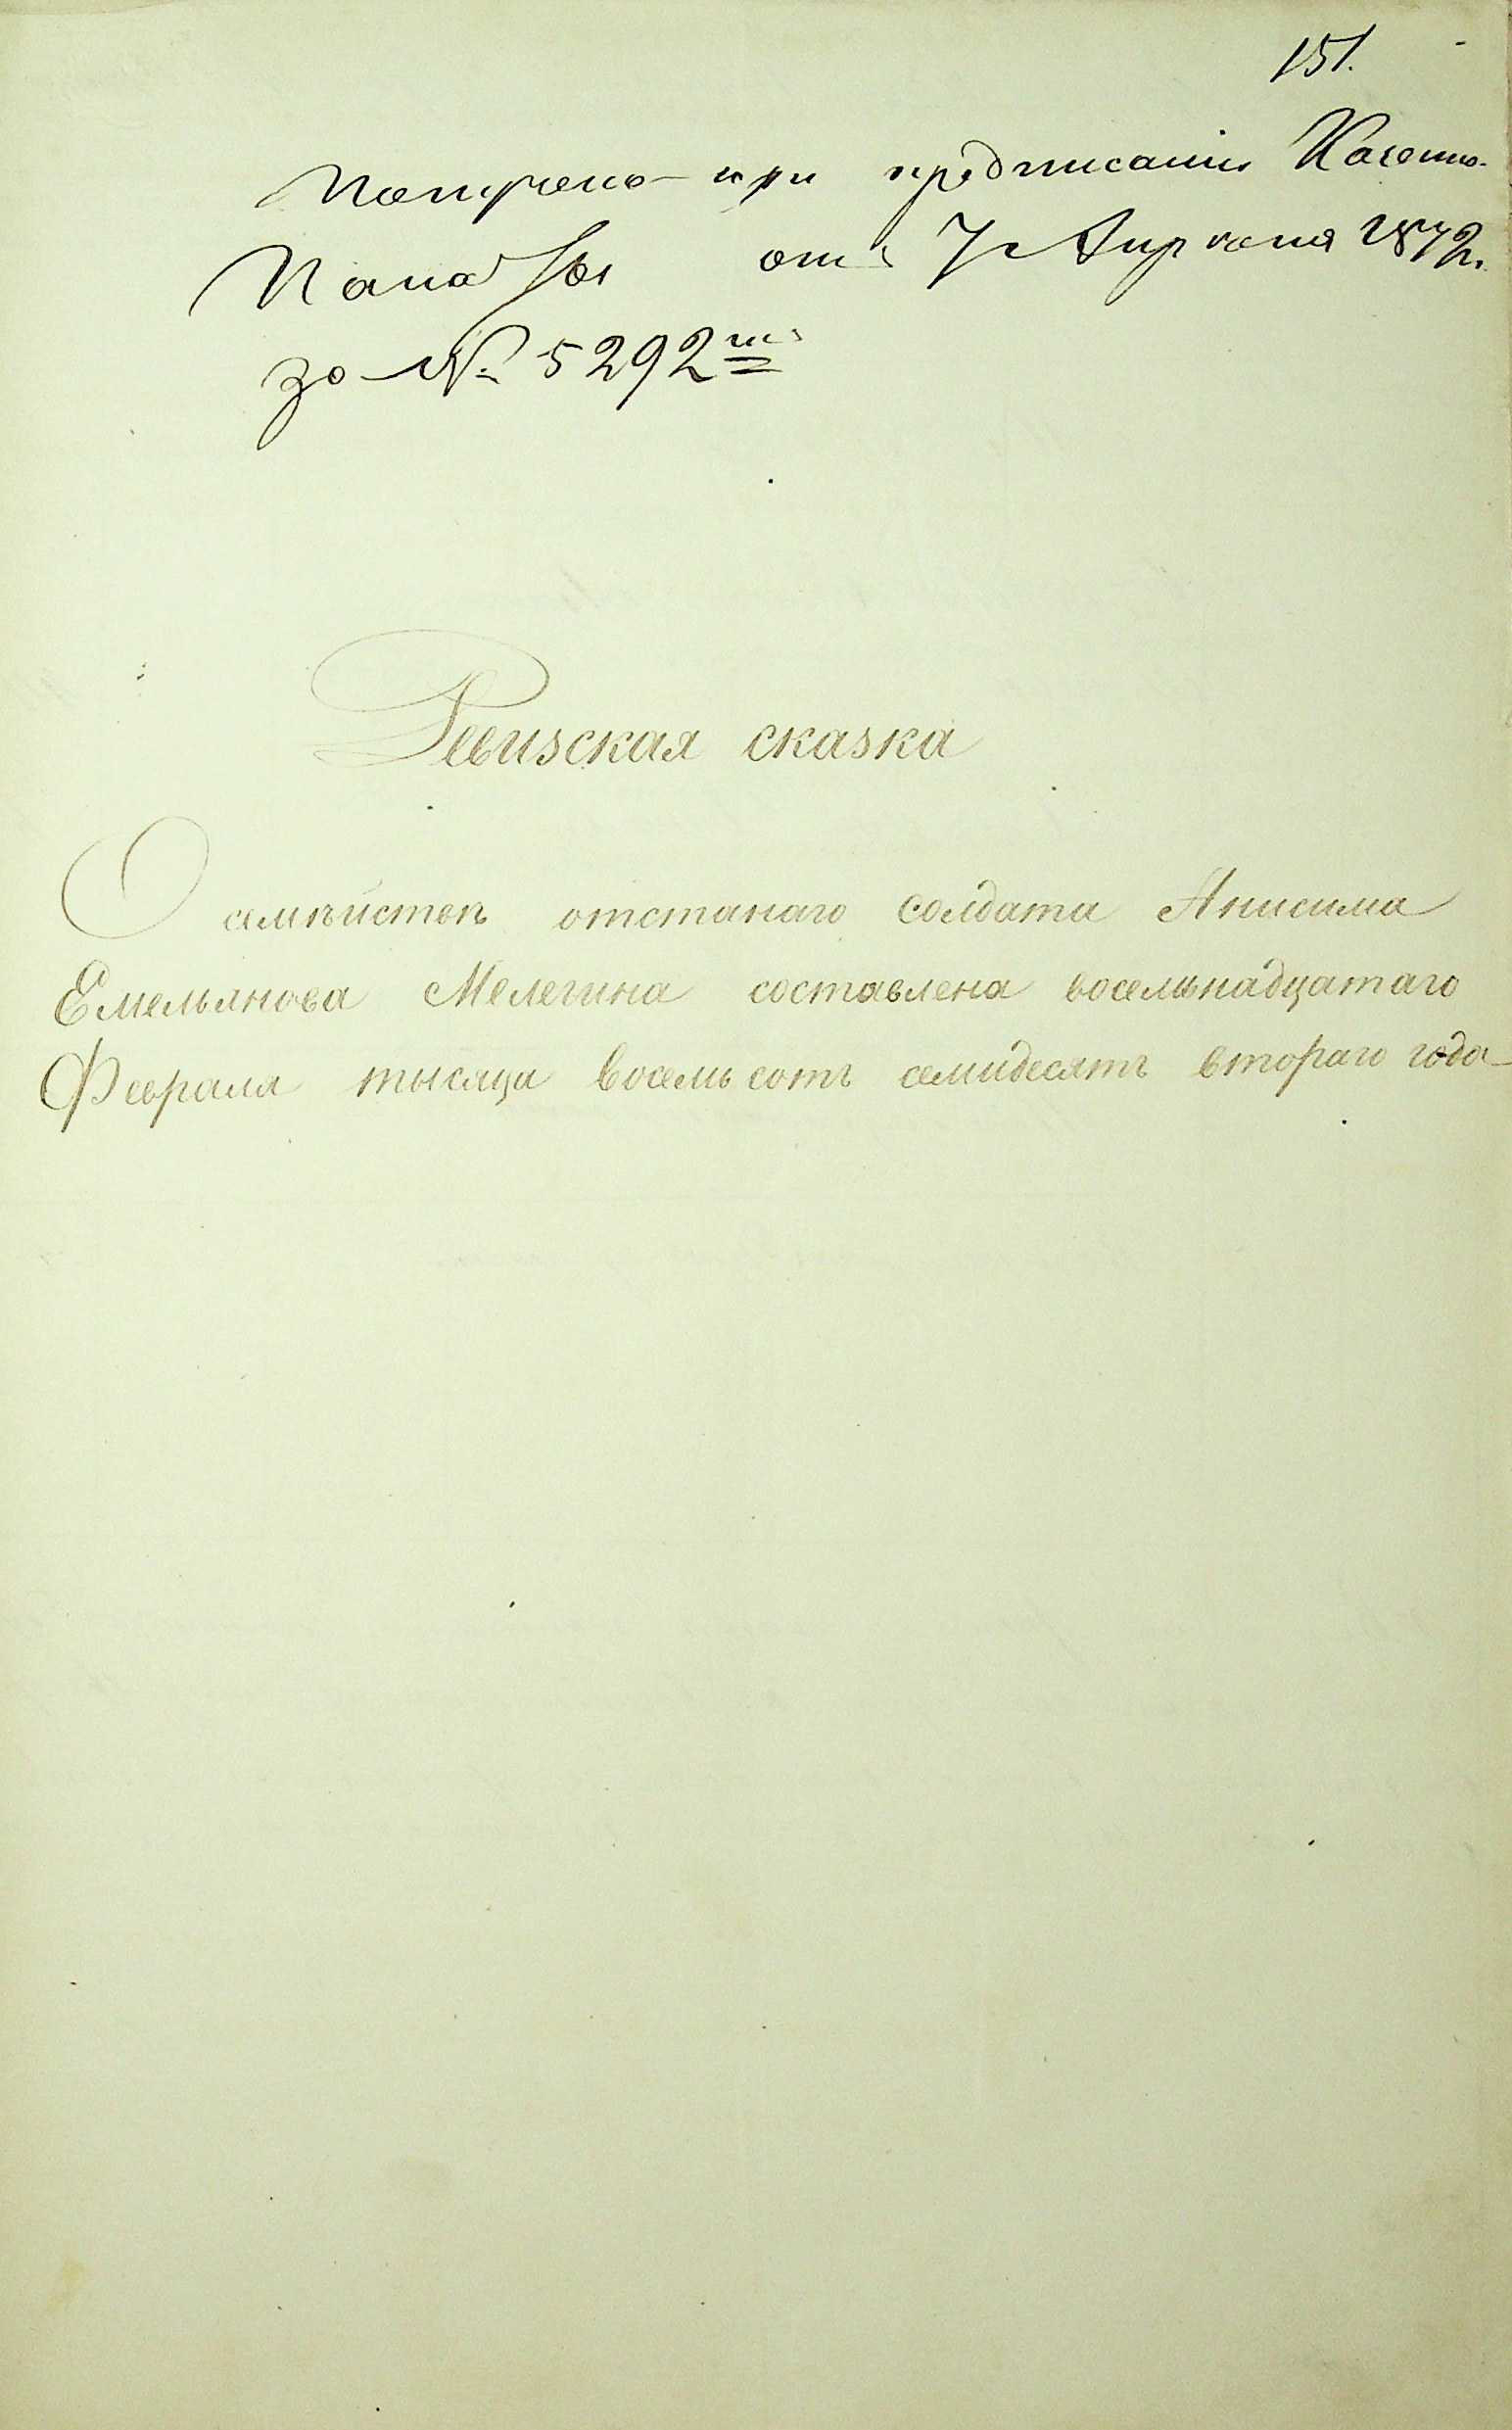 151.
Получено при предписаніи Казенно.
Палаты отъ 7 Апреля 1872.
за № 5292мъ
Ревизская сказка
О семѣйствѣ отстанаго солдата Анисима
Емельянова Мелегина составлена восемьнадцатаго
Февраля тысяца восемь сотъ семидесятъ втораго года